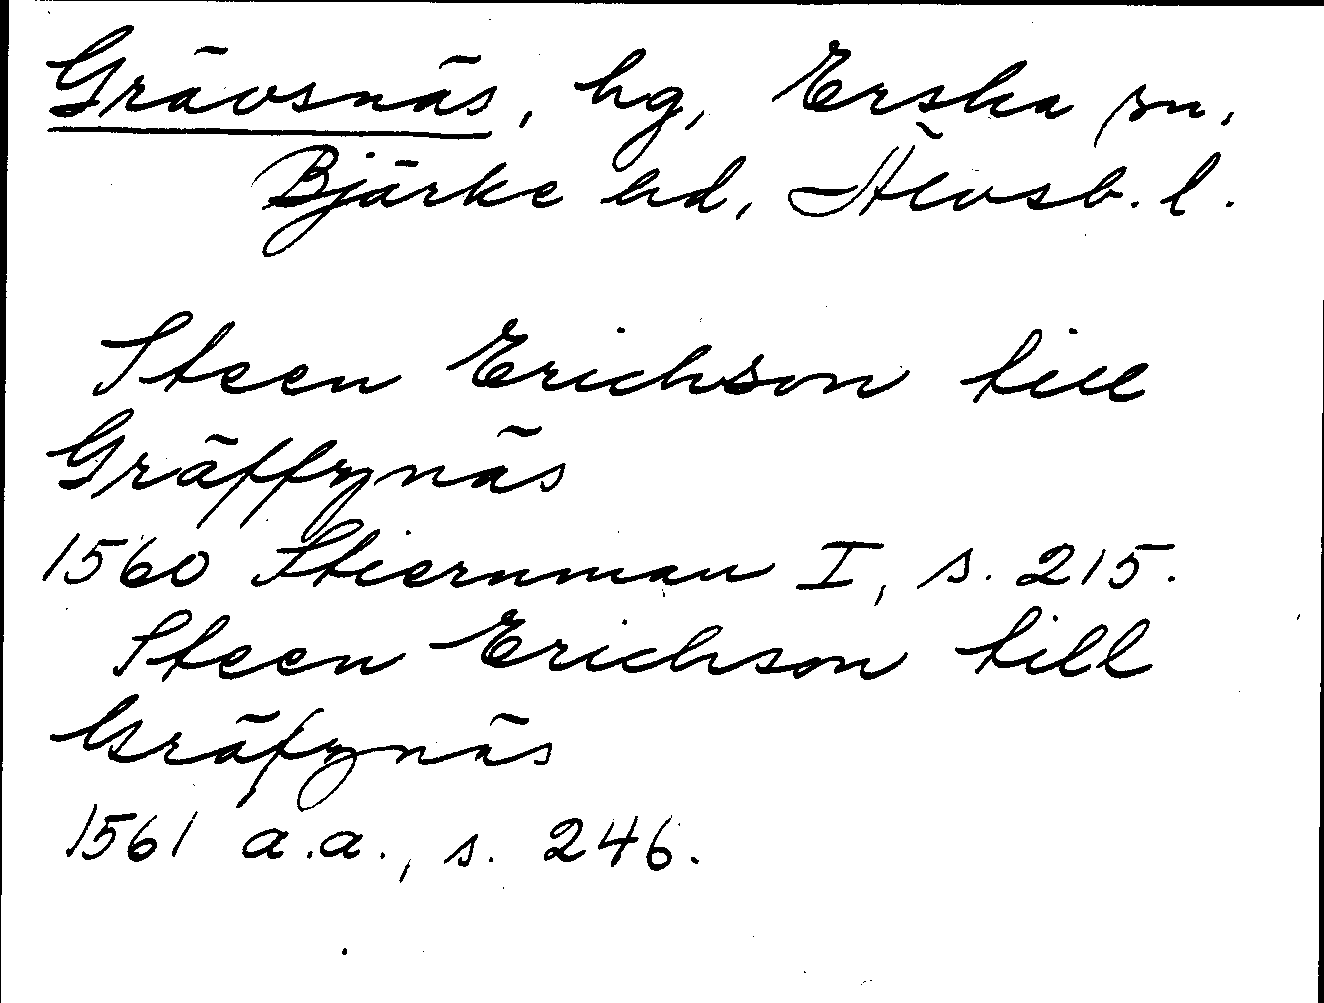 Grävsnäs, hg, Erska sn,
Bjärke hd, Älvsb. l.
Steen Erichson till
Gräffznäs
1560 Stiernman I, s. 215.
Steen Erichson till
Gräfznäs
1561 a.a., s. 246.